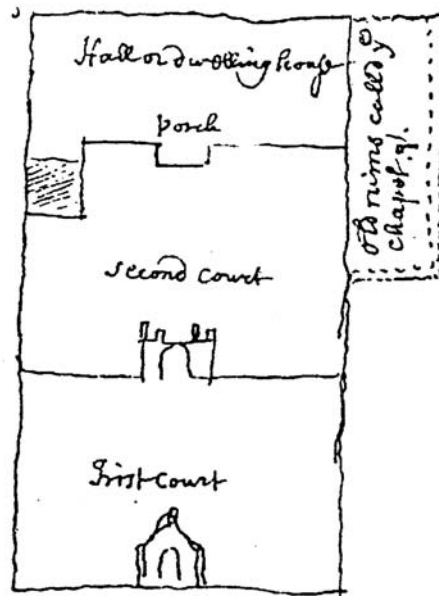 Hall or dwelling house
porch
old ruins called yᵉ
Chapel. q.
second court
First Court